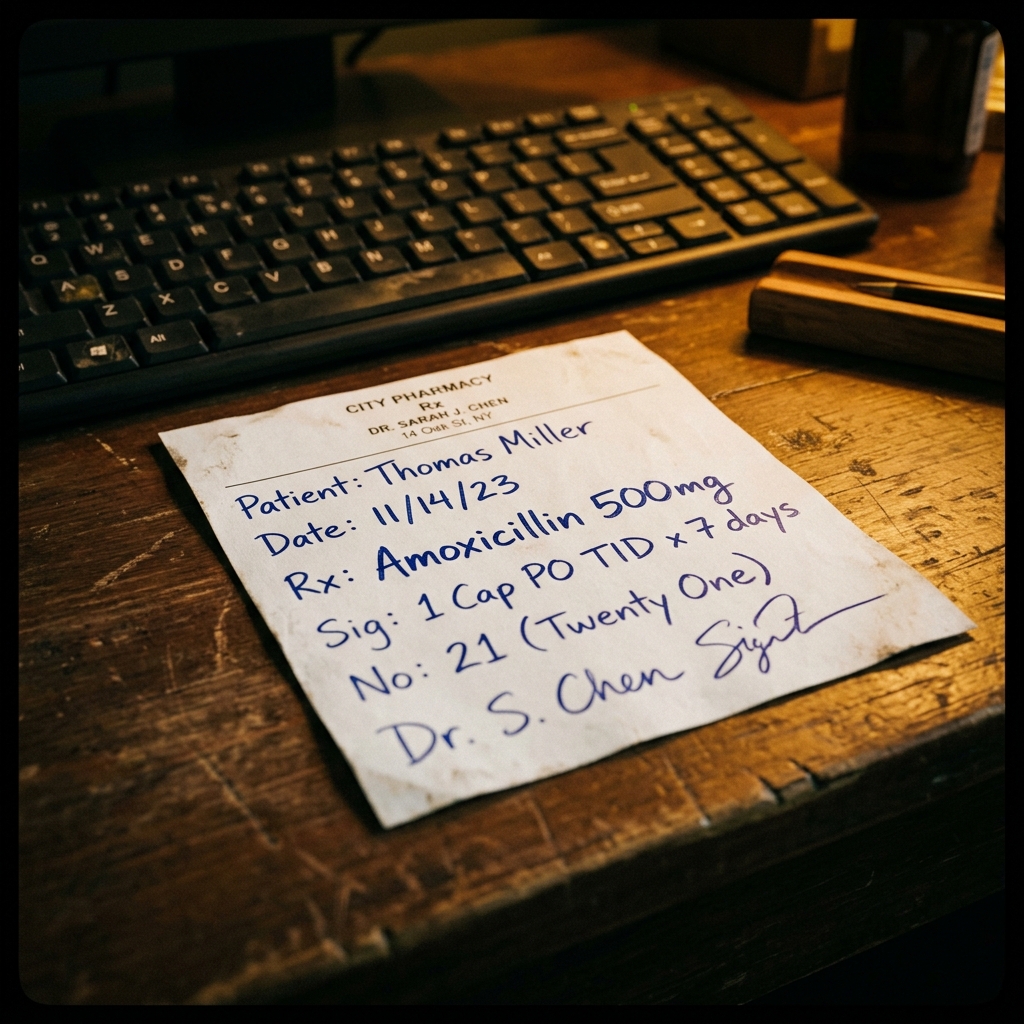 CITY PHARMACY
Rx
DR. SARAH J. CHEN
14 Oak St, NY
Patient: Thomas Miller
Date: 11/14/23
Rx: Amoxicillin 500mg
Sig: 1 Cap PO TID x 7 days
No: 21 (Twenty One)
Dr. S. Chen